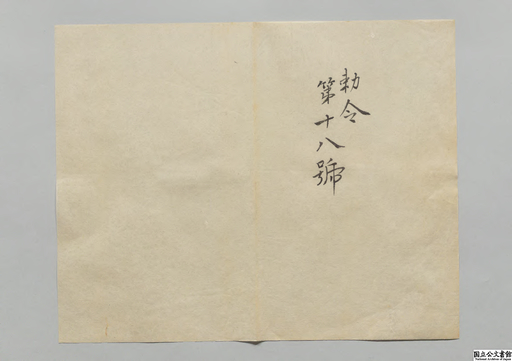 勅令
第十八號
国立公文書館
National Archives of Japan